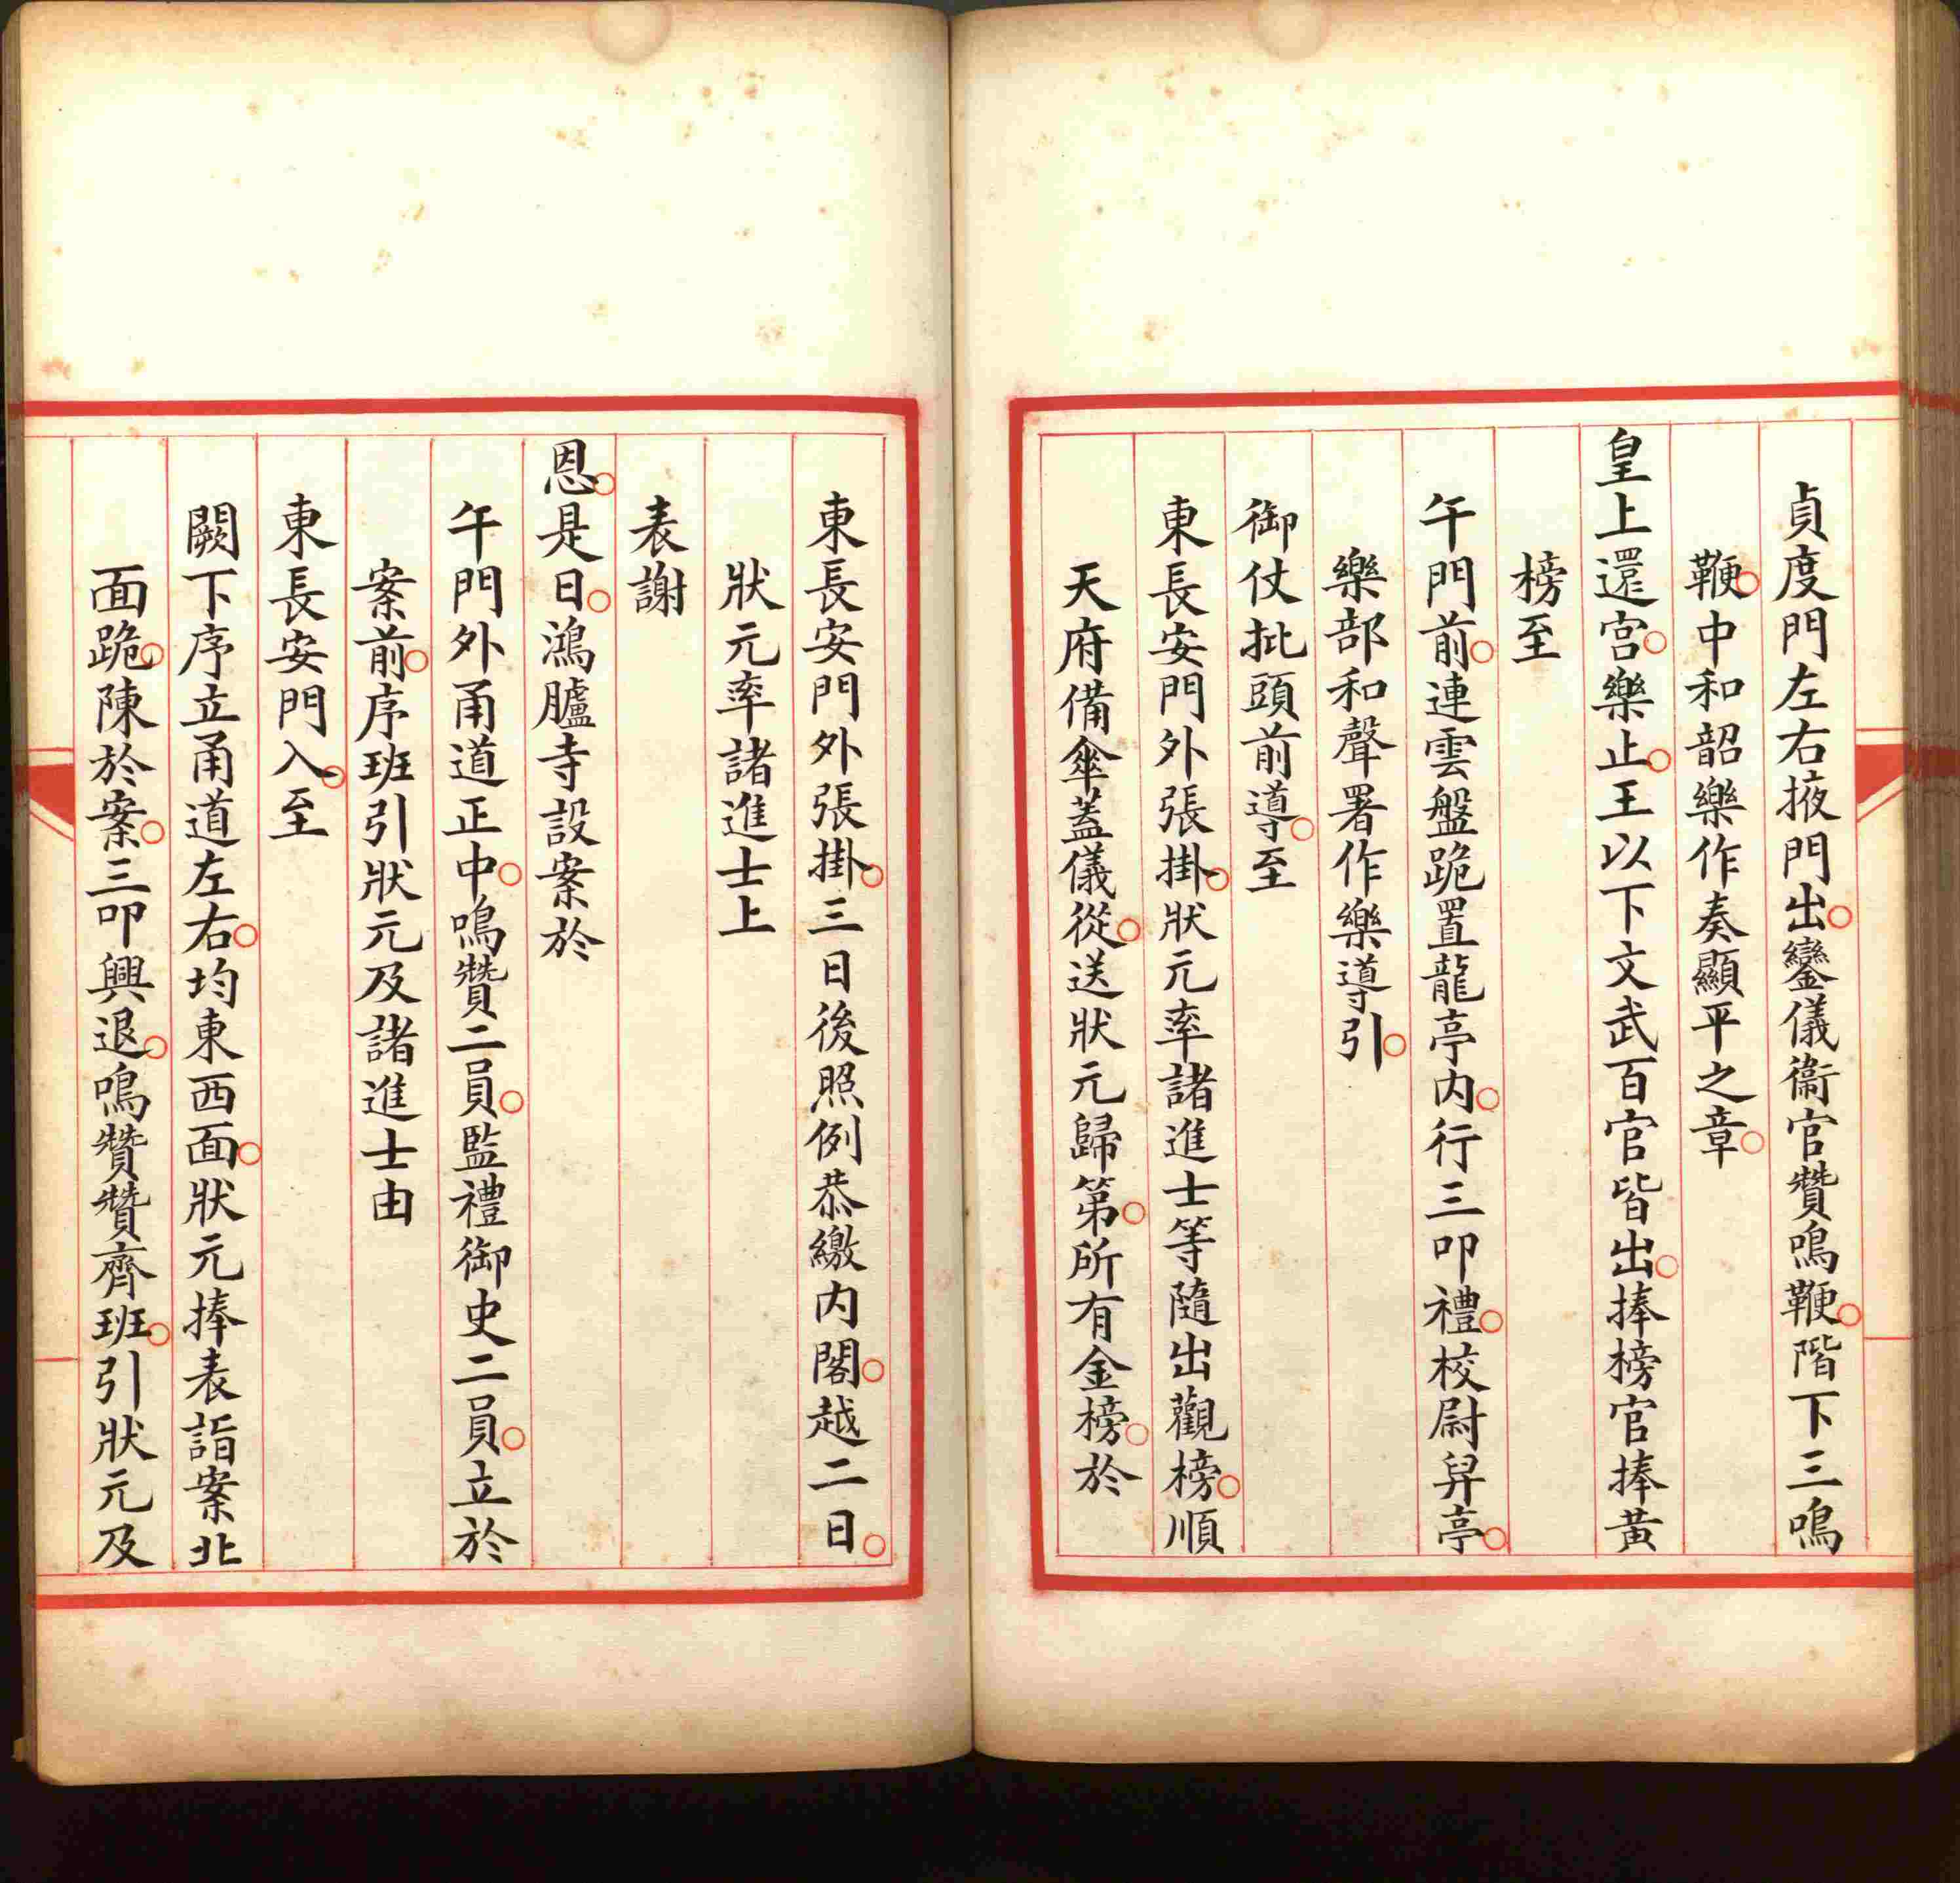 貞度門左右掖門出○鑾儀衞官贊鳴鞭○階下三鳴
鞭○中和韶樂作奏顯平之章○
皇上還宮○樂止○王以下文武百官皆出○捧榜官捧黃
榜至
午門前○連雲盤跪置龍亭內○行三叩禮○校尉舁亭○
樂部和聲署作樂導引○
御仗批頭前導○至
東長安門外張掛○狀元率諸進士等隨出觀榜○順
天府備傘蓋儀從○送狀元歸第○所有金榜○於
東長安門外張掛○三日後照例恭繳內閣○越二日○
狀元率諸進士上
表謝
恩○是日○鴻臚寺設案於
午門外甬道正中○鳴贊二員○監禮御史二員○立於
案前○序班引狀元及諸進士由
東長安門入○至
闕下序立甬道左右○均東西面○狀元捧表詣案北
面跪○陳於案○三叩興退○鳴贊贊齊班○引狀元及